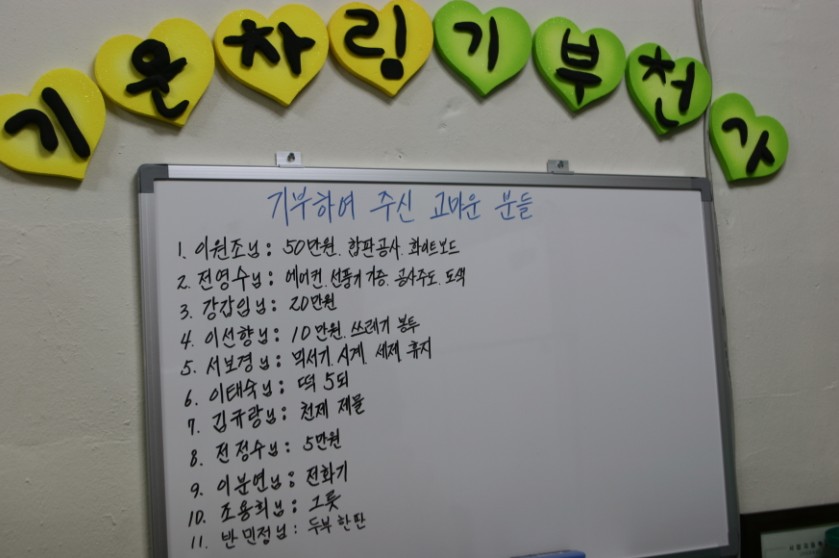 기운차림 기부천사
기부하여 주신 고마운 분들
1. 이원조님 : 50만원. 합판공사. 화이트보드
2. 전영수님 : 에어컨. 선풍기 기증. 공사주도. 도색
3. 강갑임님 : 20만원
4. 이선향님 : 10만원. 쓰레기 봉투
5. 서보경님 : 믹서기. 시계. 세제. 휴지
6. 이태숙님 : 떡 5되
7. 김규랑님 : 천제 제물
8. 전정수님 : 5만원
9. 이분연님 : 전화기
10. 조용희님 : 그릇
11. 반민정님 : 두부 한판